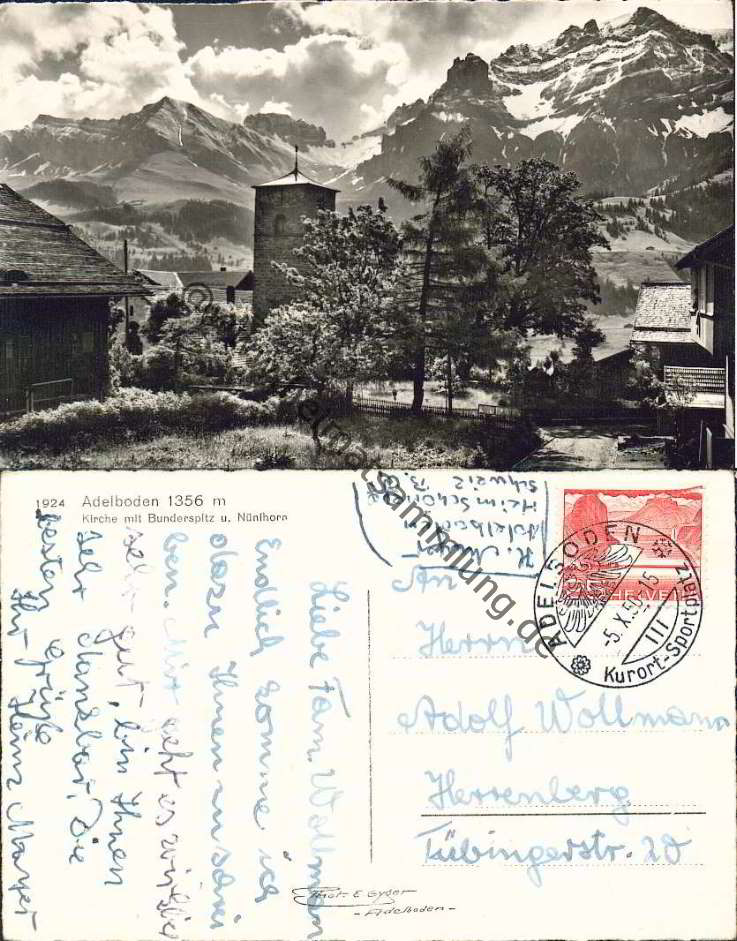 1924 Adelboden 1356 m
Kirche mit Bunderspitz u. Nünihorn
Liebe Fam. Wollmann
Endlich komme ich
dazu Ihnen zu schrei
ben. Mir geht es wirklich
sehr gut, bin Ihnen
sehr dankbar. Die
besten Grüße
Ihr Heinz Mayer
Adelboden
Schweiz B.O.
ADELBODEN
-5.X.50-15
III
Kurort-Sportplatz
HELVETIA
An
Herrn
Adolf Wollmann
Herrenberg
Tübingerstr. 20
Phot. E. Gyger
-Adelboden-
heimatsammlung.de